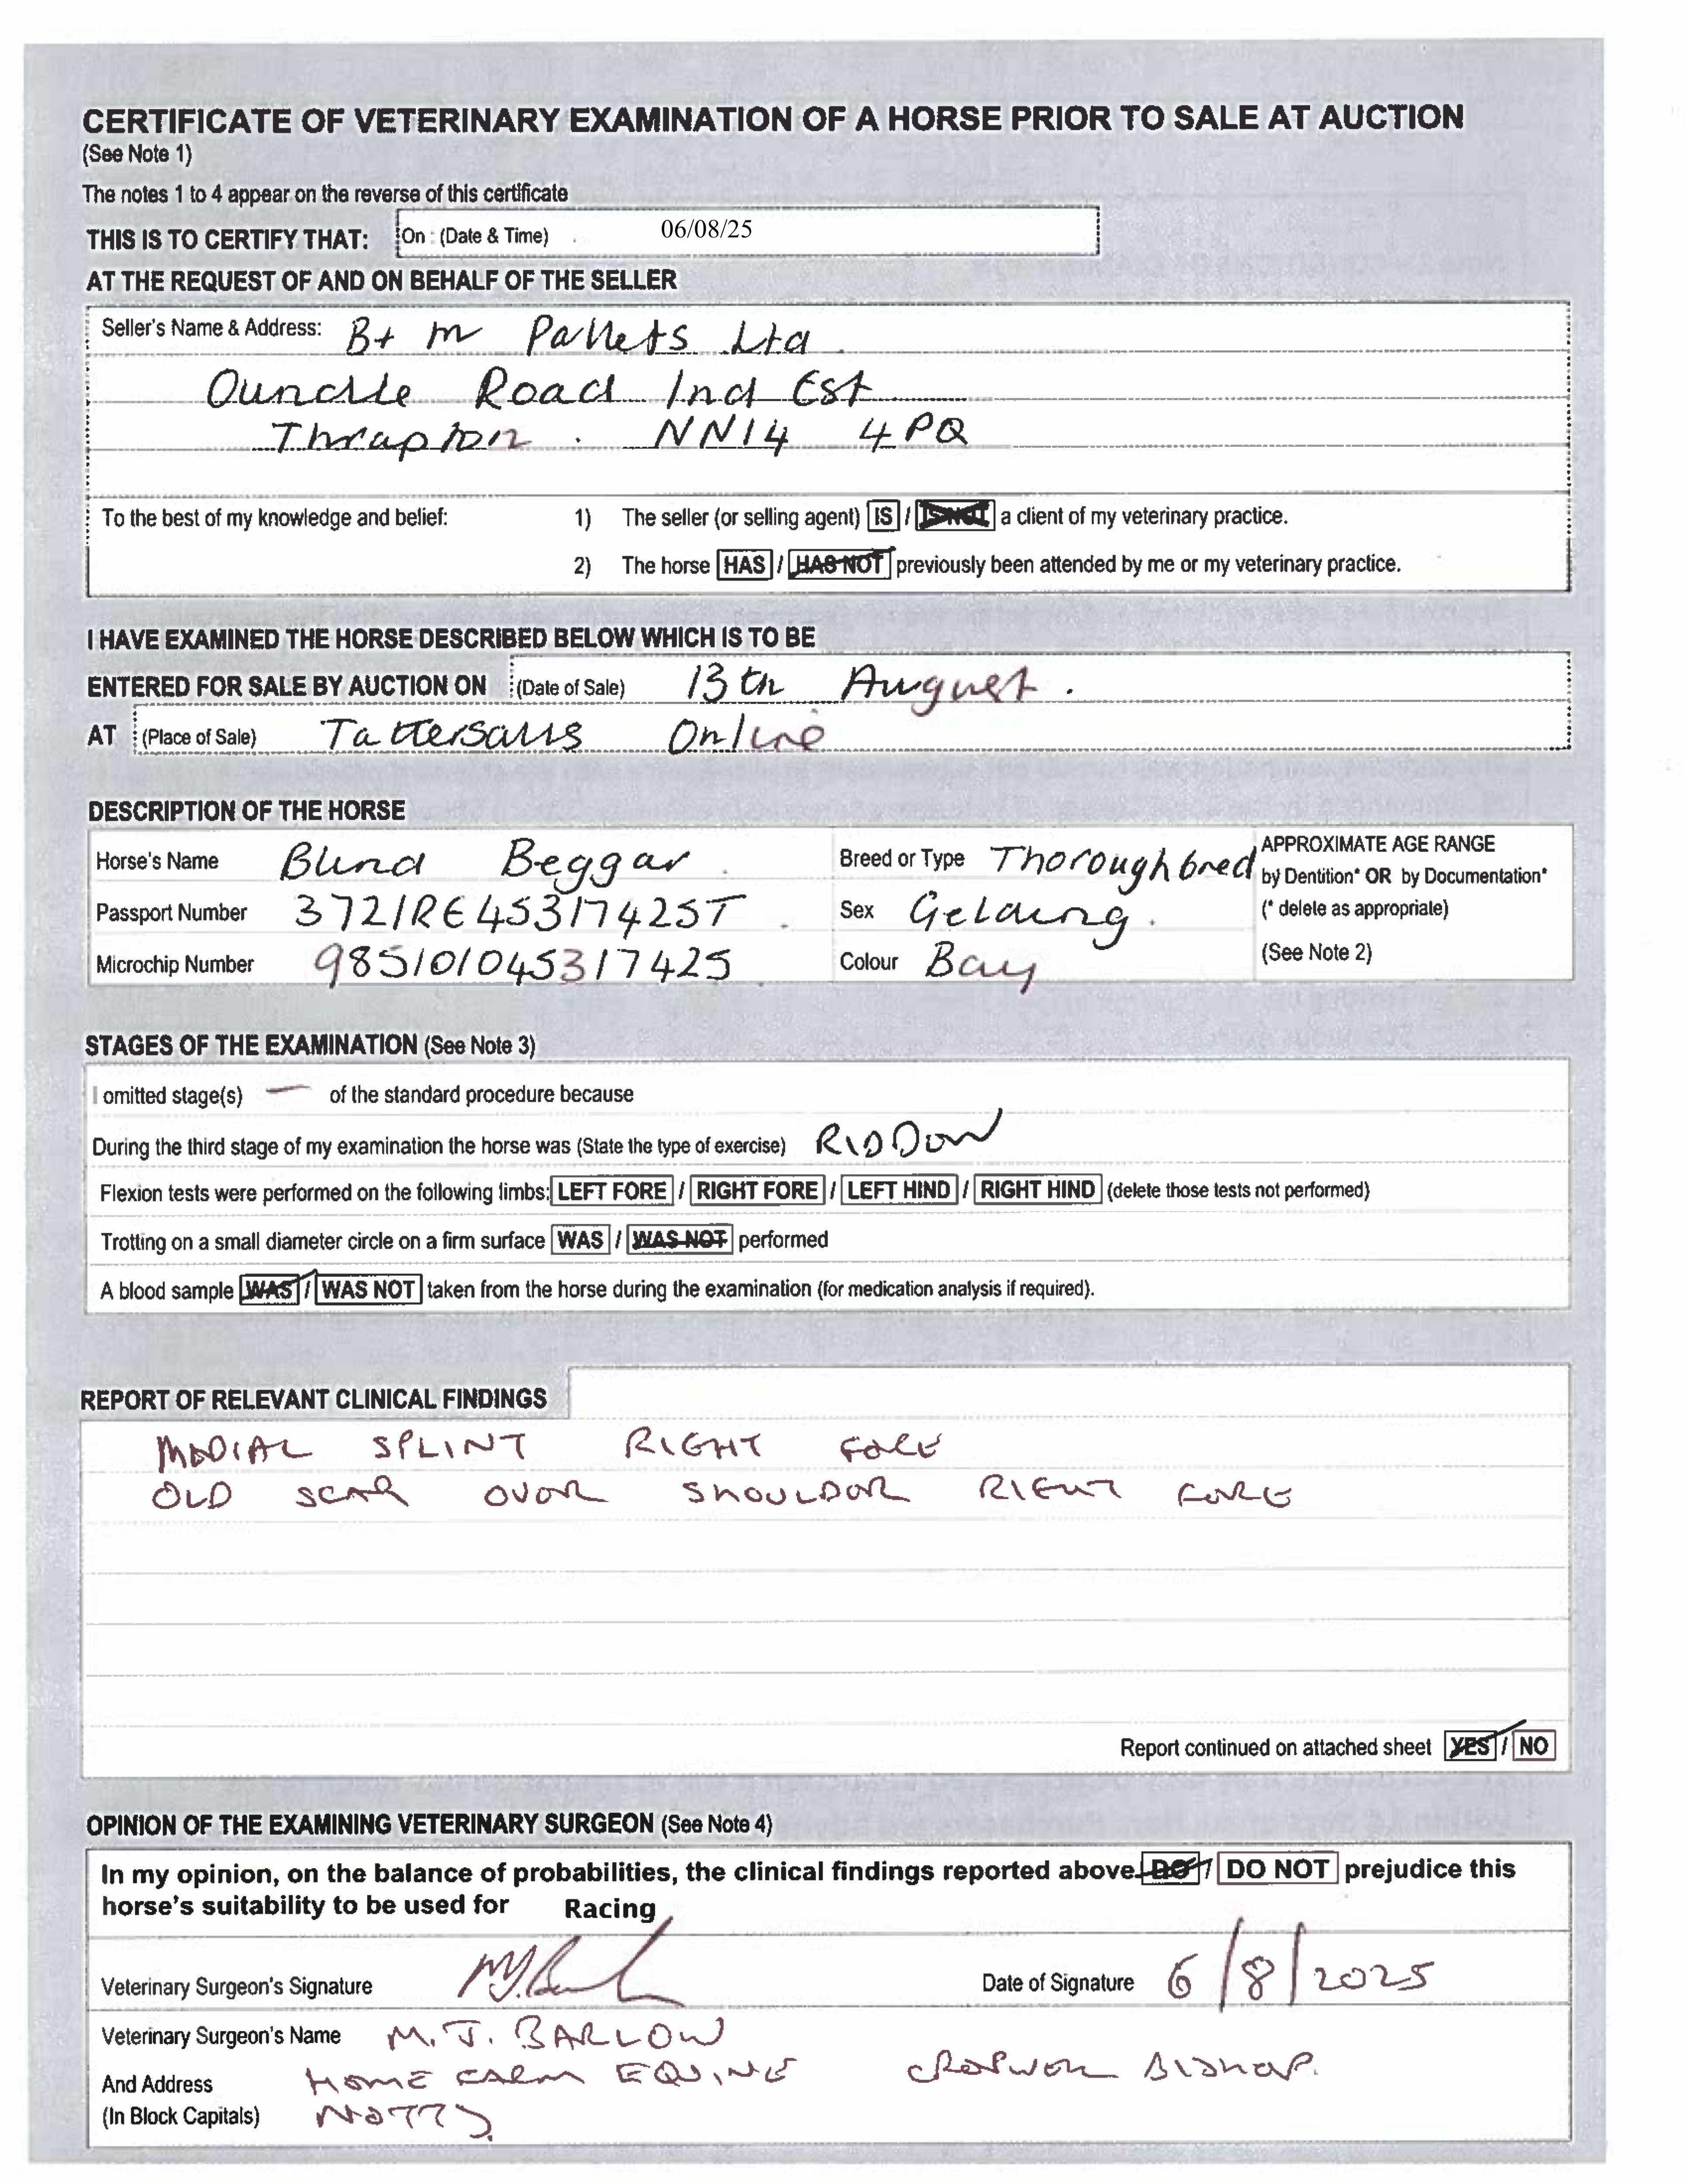 CERTIFICATE OF VETERINARY EXAMINATION OF A HORSE PRIOR TO SALE AT AUCTION
(See Note 1)
The notes 1 to 4 appear on the reverse of this certificate
THIS IS TO CERTIFY THAT: On : (Date & Time) 06/08/25
AT THE REQUEST OF AND ON BEHALF OF THE SELLER
Seller's Name & Address: B+ M Pallets Ltd
Oundle Road Ind Est
Thrapston . NN14 4PQ
To the best of my knowledge and belief: 1) The seller (or selling agent) IS / IS NOT a client of my veterinary practice.
2) The horse HAS / HAS NOT previously been attended by me or my veterinary practice.
I HAVE EXAMINED THE HORSE DESCRIBED BELOW WHICH IS TO BE
ENTERED FOR SALE BY AUCTION ON (Date of Sale) 13th August .
AT (Place of Sale) Tattersalls Online
DESCRIPTION OF THE HORSE
Horse's Name Blind Beggar . Breed or Type Thoroughbred APPROXIMATE AGE RANGE
by Dentition* OR by Documentation*
Passport Number 372IRE45317425T . Sex Gelding . (* delete as appropriate)
Microchip Number 985101045317425 Colour Bay (See Note 2)
STAGES OF THE EXAMINATION (See Note 3)
I omitted stage(s) — of the standard procedure because
During the third stage of my examination the horse was (State the type of exercise) RIDDEN
Flexion tests were performed on the following limbs: LEFT FORE / RIGHT FORE / LEFT HIND / RIGHT HIND (delete those tests not performed)
Trotting on a small diameter circle on a firm surface WAS / WAS NOT performed
A blood sample WAS / WAS NOT taken from the horse during the examination (for medication analysis if required).
REPORT OF RELEVANT CLINICAL FINDINGS
MEDIAL SPLINT RIGHT FORE
OLD SCAR OVER SHOULDER RIGHT FORE
Report continued on attached sheet YES / NO
OPINION OF THE EXAMINING VETERINARY SURGEON (See Note 4)
In my opinion, on the balance of probabilities, the clinical findings reported above DO / DO NOT prejudice this
horse's suitability to be used for Racing
Veterinary Surgeon's Signature Date of Signature 6/8/2025
Veterinary Surgeon's Name M. J. BARLOW
And Address HOME FARM EQUINE CROPWELL BISHOP.
(In Block Capitals) NOTTS.